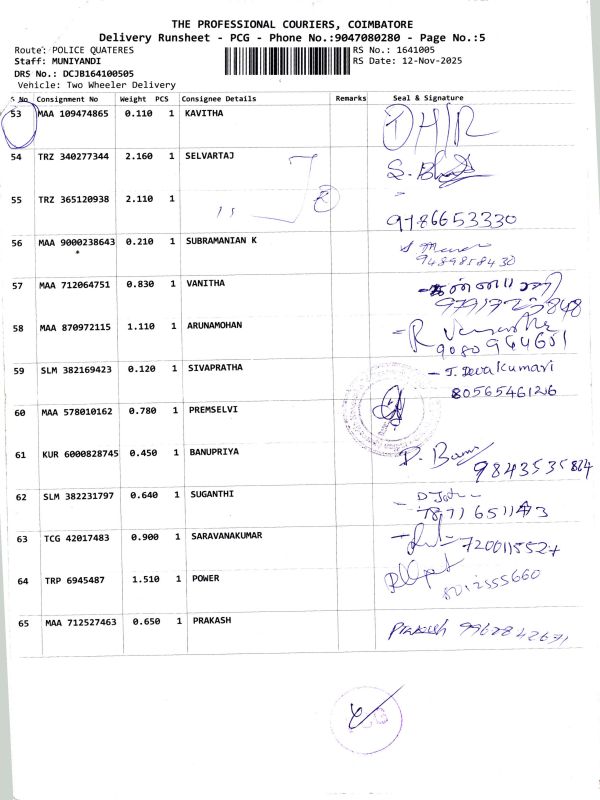 THE PROFESSIONAL COURIERS, COIMBATORE
Delivery Runsheet - PCG - Phone No.:9047080280 - Page No.:5
Route: POLICE QUATERES RS No.: 1641005
Staff: MUNIYANDI RS Date: 12-Nov-2025
DRS No.: DCJB164100505
Vehicle: Two Wheeler Delivery
S No Consignment No Weight PCS Consignee Details Remarks Seal & Signature
53 MAA 109474865 0.110 1 KAVITHA
54 TRZ 340277344 2.160 1 SELVARTAJ
55 TRZ 365120938 2.110 1 9786653330
56 MAA 9000238643 0.210 1 SUBRAMANIAN K
* 9489858430
57 MAA 712064751 0.830 1 VANITHA
58 MAA 870972115 1.110 1 ARUNAMOHAN
9080964651
59 SLM 382169423 0.120 1 SIVAPRATHA - J. Devakumari
8056546126
60 MAA 578010162 0.780 1 PREMSELVI
61 KUR 6000828745 0.450 1 BANUPRIYA
62 SLM 382231797 0.640 1 SUGANTHI
63 TCG 42017483 0.900 1 SARAVANAKUMAR
64 TRP 6945487 1.510 1 POWER
65 MAA 712527463 0.650 1 PRAKASH Prakash